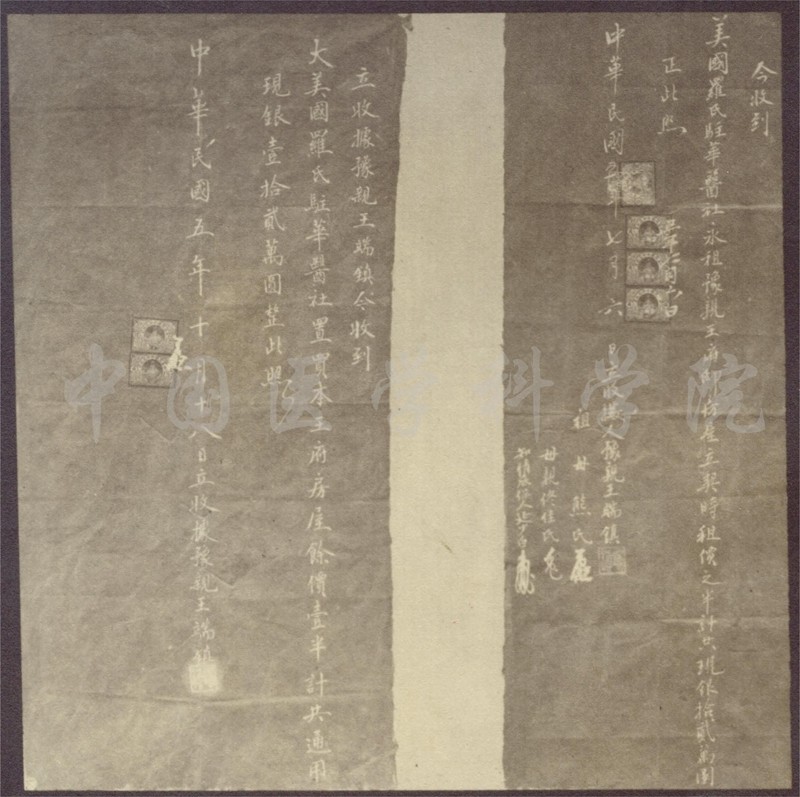 今收到
美國羅氏駐華醫社永租豫親王府邸房屋立契時租價之半計六現銀拾貳萬圓
正此照
中華民國五年七月六日立收據人豫親王端鎮
祖母熊氏
母親佟佳氏
立收據豫親王端鎮今收到
大美國羅氏駐華醫社置買本王府房屋餘價壹半計共通用
現銀壹拾貳萬圓整此照
中華民國五年十月十八日立收據豫親王端鎮
中国医学科学院